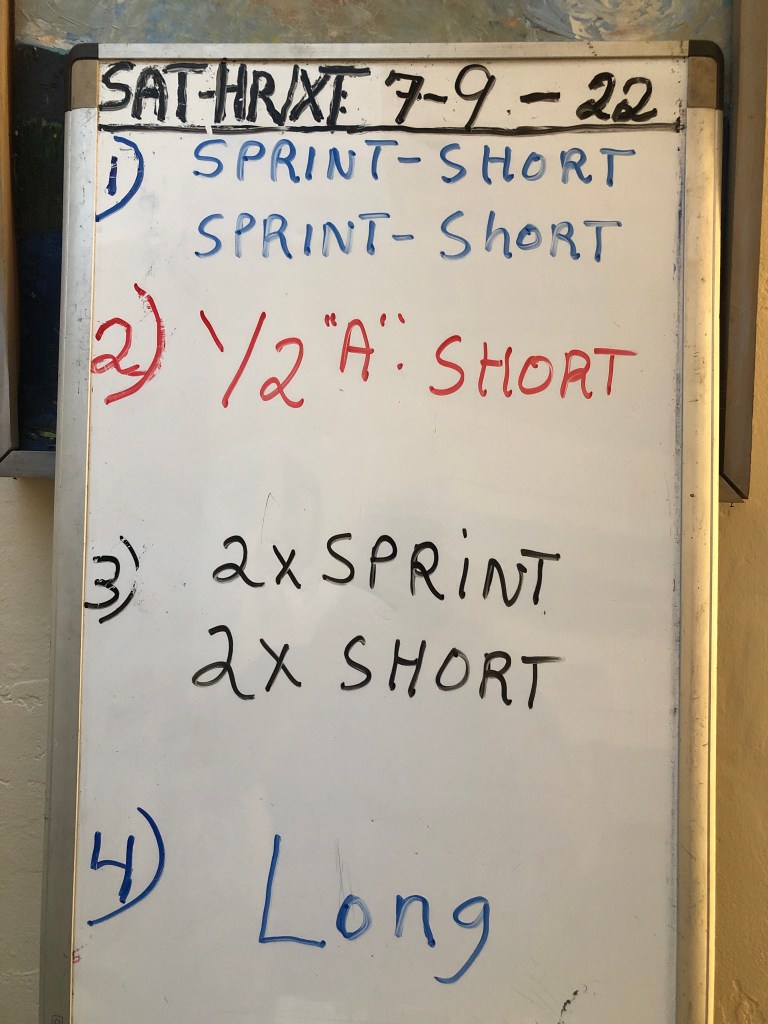 SAT-HR/XT 7-9-22
1) SPRINT-SHORT
SPRINT-ShORT
2) 1/2 "A". SHORT
3) 2x SPRiNT
2X SHORT
4) Long